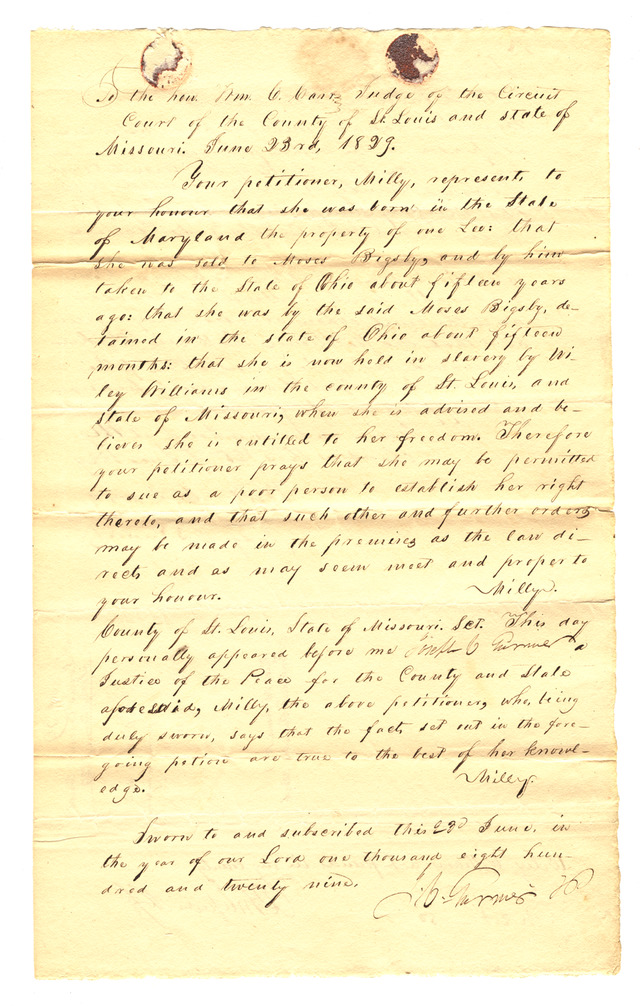 To the hon. Wm. C. Carr, Judge of the Circuit
Court of the County of St. Louis and state of
Missouri. June 23rd, 1829.
Your petitioner, Milly, represents to
your honour that she was born in the State
of Maryland the property of one Lee: that
she was sold to Moses Bigsby, and by him
taken to the State of Ohio about fifteen years
ago: that she was by the said Moses Bigsby, de-
tained in the state of Ohio about fifteen
months: that she is now held in slavery by Wi-
ley Williams in the county of St. Louis, and
state of Missouri, when she is advised and be-
lieves she is entitled to her freedom. Therefore
your petitioner prays that she may be permitted
to sue as a poor person to establish her right
thereto, and that such other and further orders
may be made in the premises as the law di-
rects and as may seem meet and proper to
your honour. Milly.
County of St. Louis, State of Missouri. Sct. This day
personally appeared before me a
Justice of the Peace for the County and State
aforesaid, Milly, the above petitioner, who, being
duly sworn, says that the facts set out in the fore-
going petion are true to the best of her knowl-
edge. Milly.
Sworn to and subscribed this 23d June, in
the year of our Lord one thousand eight hun-
dred and twenty nine.
JP